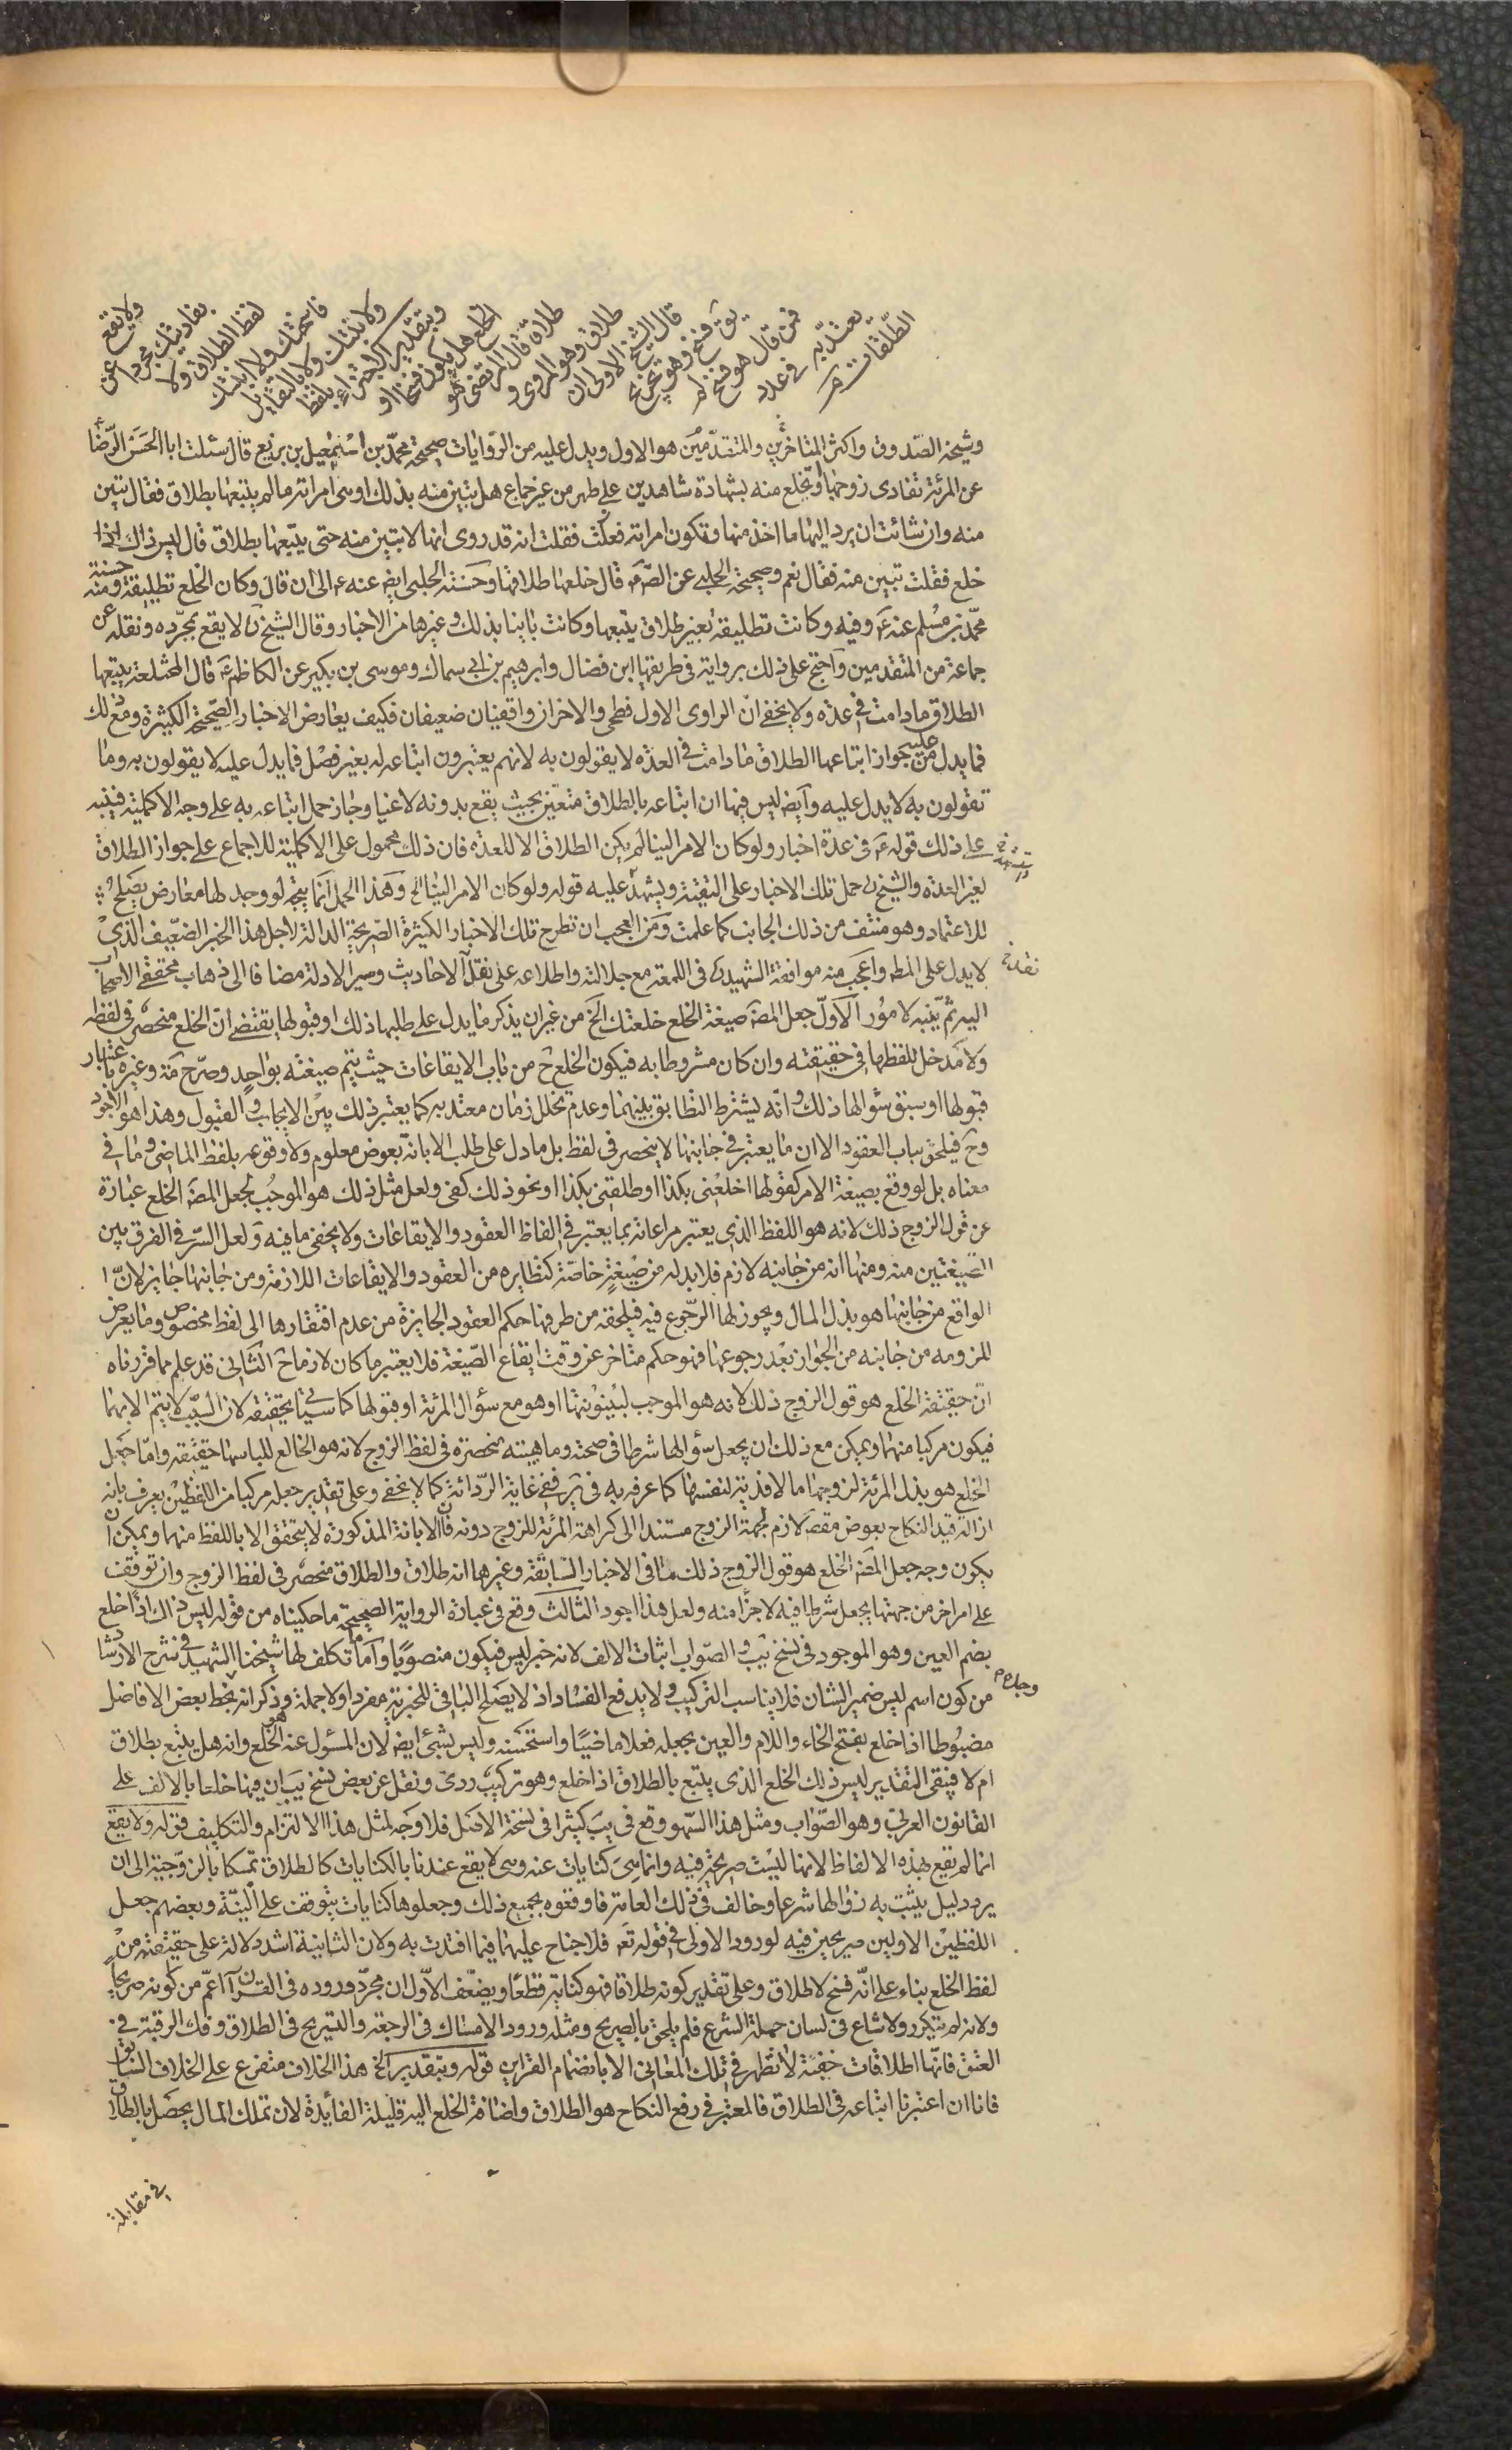 ولا يقع
بفاديتك مجردا عن
لفظ الطلاق ولا
فاسختك ولا ابنتك
ولا بتتك ولا بالتقايل
وبتقدير الاجتزاء بلفظ
الخلع هل يكون فسخا او
طلاقا قال المرتضى هو
طلاق وهو المروى و
قال الشيخ الاولى ان
يق فسخ وهو تخريج
فمن قال هو فسخ لم
يعتد به فى عدد
الطلقات
وشيخنا الصدوق واكثر المتاخرين والمتقدمين هو الاول ويدل عليه من الروايات صحيحة محمد بن اسمعيل بن بزيع قال سئلت ابا الحسن الرضا ع
عن المرئة تفادى زوجها او تختلع منه بشهادة شاهدين على طهر من غير جماع هل تبين منه بذلك او هى امراته ما لم يتبعها بطلاق فقال تبين
منه وان شائت ان يرد اليها ما اخذ منها وتكون امراته فعلت فقلت انه قد روى انها لا تبين منه حتى يتبعها بطلاق قال ليس ذاك اذا
خلع فقلت تبين منه فقال نعم وصحيحة الحلبى عن الصم قال خلعها طلاقها وحسنة الحلبى ايضا عنه ع الى ان قال وكان الخلع تطليقة ومنه حسنة
محمد بن مسلم عنه ع وفيه وكانت تطليقة بغير طلاق يتبعها وكانت باينا بذلك وغيرها من الاخبار وقال الشيخ ره لا يقع بمجرده ونقله عن
جماعة من المتقدمين واحتج على ذلك برواية فى طريقها ابن فضال وابرهيم بن ابى سماك وموسى بن بكير عن الكاظم ع قال المختلعة يتبعها
الطلاق ما دامت فى عدة ولا يخفى ان الراوى الاول فطحى والاخران واقفيان ضعيفان فكيف يعارض الاخبار الصحيحة الكثيرة ومع ذلك
فما يدل عليه من جواز اتباعها الطلاق ما دامت فى العدة لا يقولون به لانهم يعتبرون اتباعه له بغير فصل فما يدل عليه لا يقولون به وما
تقولون به لا يدل عليه وايضا ليس فيها ان اتباعه بالطلاق متعين بحيث يقع بدونه لاغيا وجاز حمل اتباعه به على وجه الاكملية فينبه
على ذلك قوله ع فى عدة اخبار ولو كان الامر الينا لم يكن الطلاق الا للعدة فان ذلك محمول على الاكملية للاجماع على جواز الطلاق
لغير العدة والشيخ ره حمل تلك الاخبار على التقية ويشهد عليه قوله ولو كان الامر الينا الخ وهذا الحمل انما يتجه لو وجد لها معارض يصلح
للاعتماد وهو منتف من ذلك الجانب كما علمت ومن العجب ان تطرح تلك الاخبار الكثيرة الصريحة الدالة لاجل هذا الخبر الضعيف الذى
لا يدل على المط واعجب منه موافقة الشهيد ره فى اللمعة مع جلالته واطلاعه على نقل الاحاديث وسير الادلة مضافا الى ذهاب محققى الاصحاب
اليه ثم ينبه لامور الاول جعل المصنف صيغة الخلع خلعتك الخ من غير ان يذكر ما يدل على طلبها ذلك او قبولها يقتضى ان الخلع منحصر فى لفظه
ولا مدخل للفظها فى حقيقته وان كان مشروطا به فيكون الخلع ح من باب الايقاعات حيث يتم صيغته بواحد وصرح مة وغيره باعتبار
قبولها او سبق سؤالها ذلك وانه يشترط التطابق بينهما وعدم تخلل زمان معتد به كما يعتبر ذلك بين الايجاب و القبول وهذا هو الاجود
وح فيلحق بباب العقود الا ان ما يعتبر فى جانبها لا ينحصر فى لفظ بل ما دل على طلب الابانة بعوض معلوم ولا وقوعه بلفظ الماضى وما فى
معناه بل لو وقع بصيغة الامر كقولها اخلعنى بكذا او طلقنى بكذا او نحو ذلك كفى ولعل مثل ذلك هو الموجب لجعل المصنف الخلع عبارة
عن قول الزوج ذلك لانه هو اللفظ الذى يعتبر مراعاته بما يعتبر فى الفاظ العقود والايقاعات ولا يخفى ما فيه ولعل السر فى الفرق بين
الصيغتين منه ومنها انه من جانبه لازم فلا بد له من صيغة خاصة كنظايره من العقود والايقاعات اللازمة ومن جانبها جايز لان ا
الواقع من جانبها هو بذل المال ويجوز لها الرجوع فيه فيلحقه من طرفها حكم العقود الجايزة من عدم افتقارها الى لفظ مخصوص وما يعرض
للزومه من جانبه من الجواز بعد رجوعها فهو حكم متاخر عن وقت ايقاع الصيغة فلا يعتبر ما كان لازما ح الثانى قد علم مما قررناه
ان حقيقة الخلع هو قول الزوج ذلك لانه هو الموجب لبينونتها او هو مع سؤال المرئة او قبولها كما سيئتى تحقيقه لان السبب لا يتم الا بهما
فيكون مركبا منهما ويمكن مع ذلك ان يجعل سؤالها شرطا فى صحته وماهيته منحصرة فى لفظ الزوج لانه هو الخالع للباسها حقيقة واما جعل
الخلع هو بذل المرئة لزوجها مالا فدية لنفسها كما عرفه به فى ففى غاية الردائة كما لا يخفى وعلى تقدير جعله مركبا من اللفظين يعرف بانه
ازالة قيد النكاح بعوض مقصود لازم لجهة الزوج مستندا الى كراهة المرئة للزوج دونه فان الابانة المذكورة لا يتحقق الا باللفظ منهما ويمكن ان
يكون وجه جعل المصنف الخلع هو قول الزوج ذلك ما فى الاخبار السابقة وغيرها انه طلاق والطلاق منحصر فى لفظ الزوج وان توقف
على امر اخر من جهتها يجعل شرطا فيه لا جزأ منه ولعل هذا اجود الثالث وقع فى عبارة الرواية الصحيحة ما حكيناه من قوله ليس ذاك اذا خلع
بضم العين وهو الموجود فى نسخ يب و الصواب اثبات الالف لانه خبر ليس فيكون منصوبا واما ما تكلف لها شيخنا الشهيد فى شرح الارشاد
من كون اسم ليس ضمير الشان فلا يناسب التركيب ولا يدفع الفساد اذ لا يصلح الباقى للخبرية مفردا ولا جملة وذكر انه بخط بعض الافاضل
مضبوطا اذا خلع بفتح الخاء واللام والعين بجعله فعلا ماضيا واستحسنه وليس بشىء ايضا لان المسئول عنه هو الخلع وانه هل يتبع بطلاق
ام لا فيبقى التقدير ليس ذلك الخلع الذى يتبع بالطلاق اذا خلع وهو تركيب ردى ونقل عن بعض نسخ يب ان فيها خلعا بالالف على
القانون العربى وهو الصواب ومثل هذا السهو وقع فى يب كثيرا فى نسخة الاصل فلا وجه لمثل هذا الالتزام والتكليف قوله ولا يقع
انما لم يقع بهذه الالفاظ لانها ليست صريحة فيه وانما هى كنايات عنه وهى لا يقع عندنا بالكنايات كالطلاق تمسكا بالزوجية الى ان
يرد دليل يثبت به زوالها شرعا وخالف فى ذلك العامة فاوقعوه بجميع ذلك وجعلوها كنايات يتوقف على النية وبعضهم جعل
اللفظين الاولين صريحين فيه لورود الاولى فى قوله تع فلا جناح عليهما فيما افتدت به ولان الثانية اشد دلالة على حقيقته من
لفظ الخلع بناء على انه فسخ لا طلاق وعلى تقدير كونه طلاقا فهو كناية قطعا ويضعف الاول ان مجرد وروده فى القران اعم من كونه صريحا
ولانه لم يتكرر ولا شاع فى لسان حملة الشرع فلم يلحق بالصريح ومثله ورود الامساك فى الرجعة والتسريح فى الطلاق وفك الرقبة فى
العتق فانها اطلاقات خفية لا تظهر فى تلك المعانى الا بانضمام القراين قوله وبتقدير الخ هذا الخلاف متفرع على الخلاف السابق
فانا ان اعتبرنا اتباعه فى الطلاق فالمعتبر فى رفع النكاح هو الطلاق واضافة الخلع اليه قليلة الفائدة لان تملك المال يحصل بالطلاق
فى مقابلة